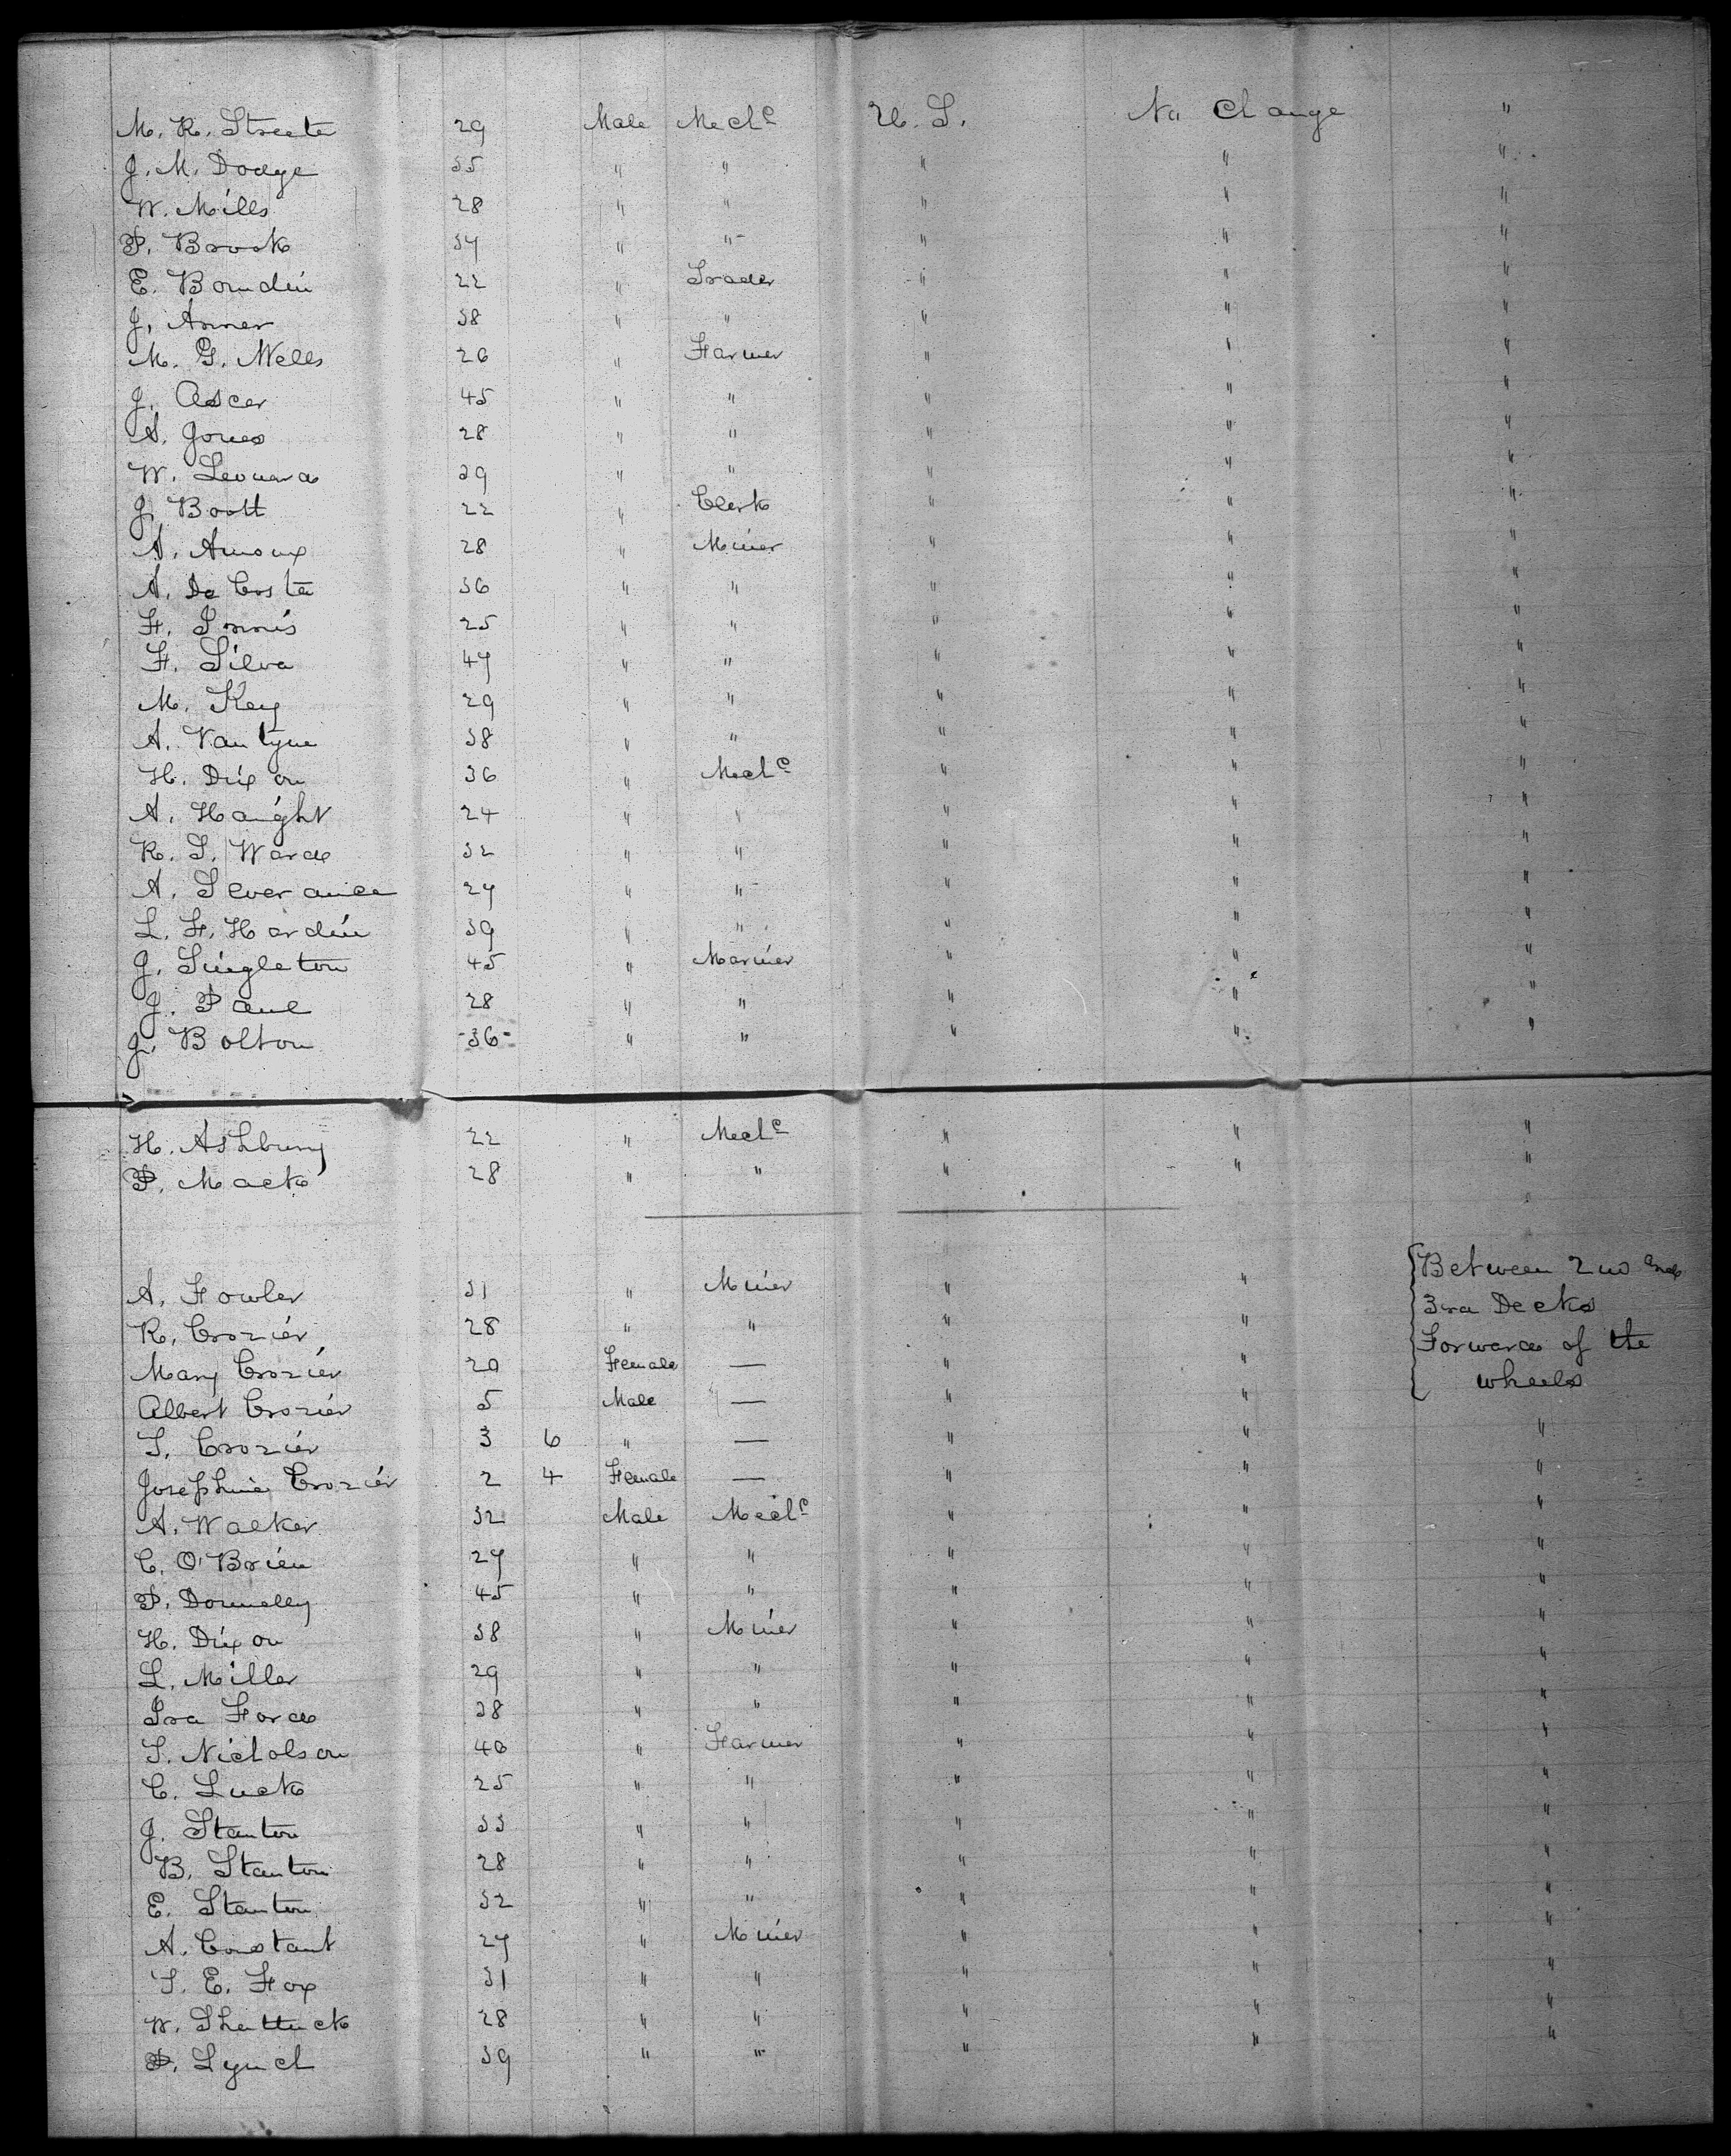 M. R. Streeter 29 Male Mechc U. S. No Change "
J. M. Dodge 35 " " " " "
W. Mills 28 " " " " "
P. Brook 37 " " " " "
E. Bowdin 22 " Trader " " "
J. Anner 38 " " " " "
M. G. Wells 26 " Farmer " " "
J. Ascer 45 " " " " "
A. Jones 28 " " " " "
W. Leonard 29 " " " " "
J. Boott 22 " Clerk " " "
A. Arnoux 28 " Miner " " "
A. Da Costa 36 " " " " "
F. 25 " " " " "
F. Silva 47 " " " " "
M. Key 29 " " " " "
A. Vantyne 38 " " " " "
H. Dixon 36 " Mechc " " "
A. Haight 24 " " " " "
R. S. Ward 32 " " " " "
A. Severance 27 " " " " "
L. F. Hardin 39 " " " " "
J. Singleton 45 " Mariner " " "
J. Paul 28 " " " " "
J. Bolton 36 " " " " "
H. Ashbury 22 " Mechc " " "
P. Mack 28 " " " " "
A. Fowler 31 " Miner " " Between 2nd and
R. Crozier 28 " " " " 3rd Decks
Mary Crozier 20 Female — " " Forward of the
Albert Crozier 5 Male — " " wheels
T. Crozier 3 6 " — " " "
Josephine Crozier 2 4 Female — " " "
A. Walker 32 Male Mechc " " "
C. O'Brien 27 " " " " "
P. Donnelly 45 " " " " "
H. Dixon 38 " Miner " " "
L. Miller 29 " " " " "
Ira Ford 38 " " " " "
T. Nicholson 40 " Farmer " " "
C. Luck 25 " " " " "
J. Stanton 33 " " " " "
B. Stanton 28 " " " " "
E. Stanton 32 " " " " "
A. Constant 27 " Miner " " "
T. E. Fox 31 " " " " "
W. Shattuck 28 " " " " "
P. Lynch 39 " " " " "